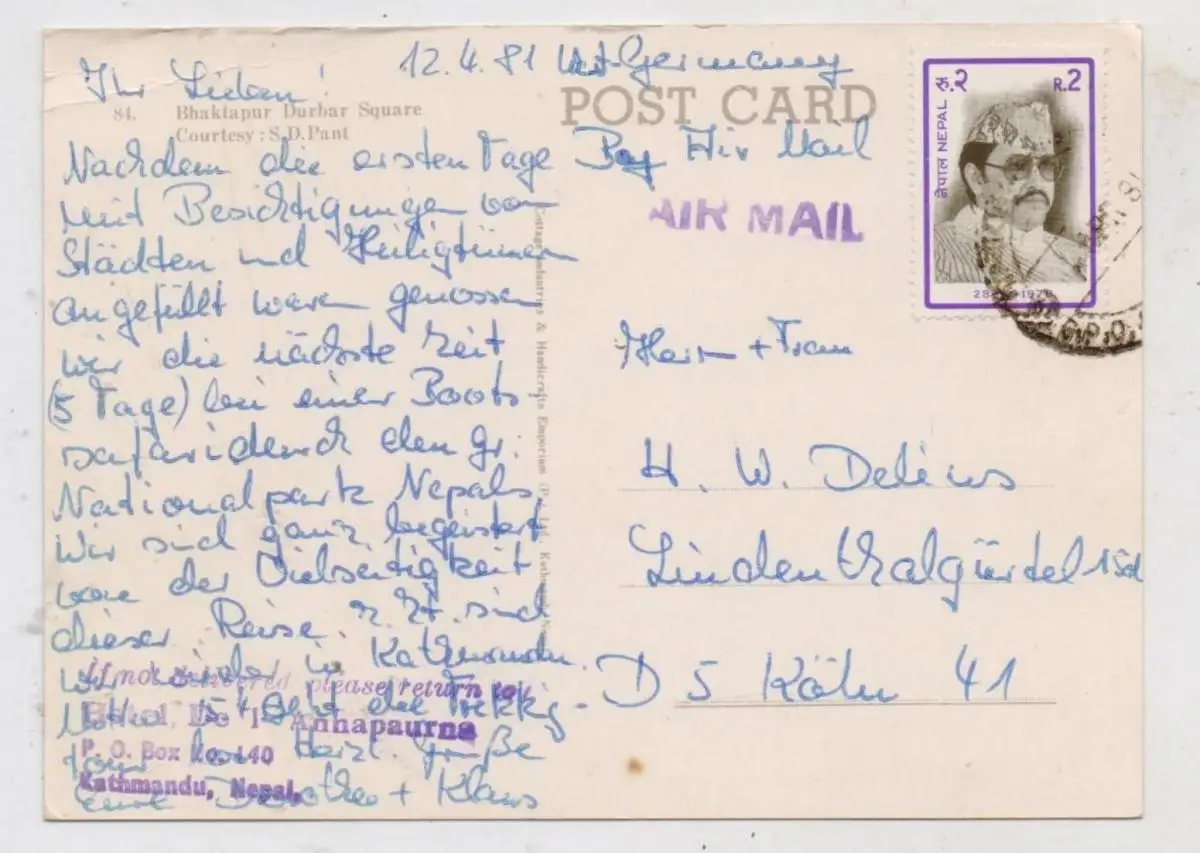 12.4.81
Ihr Lieben!
84. Bhaktapur Durbar Square
Courtesy : S.D.Pant
Nachdem die ersten Tage
mit Besichtigungen von
Städten und Heiligtümern
angefüllt waren genossen
wir die nächste Zeit
(5 Tage) bei einer Boots-
safari durch den gr.
Nationalpark Nepals.
Wir sind ganz begeistert
von der Vielseitigkeit
dieser Reise. z. Zt. sind
wir wieder in Kathmandu.
geht die Trekking-
tour los. Herzl. Grüße
eure Dorothee + Klaus
If not delivered please return to
Hotel De l' Annapaurna
P. O. Box No. 140
Kathmandu, Nepal.
Cottage Industries & Handicrafts Emporium (P.) Ltd. Kathmandu
West-Germany
POST CARD
By Air Mail
AIR MAIL
रु.२
R.2
नेपाल NEPAL
G.P.O.
Herrn + Frau
H. W. Delius
Lindenthalgürtel 15d
D 5 Köln 41